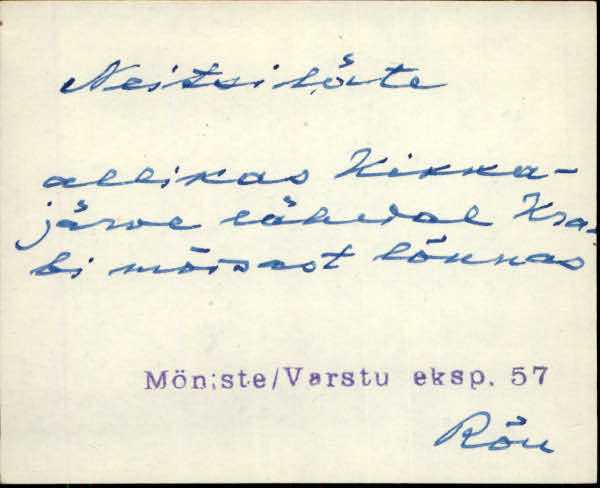 Neitsiläte
allikas Kikka-
järve lähedal Kra-
bi mõisast lõunas
Mõniste/Varstu eksp. 57
Rõu